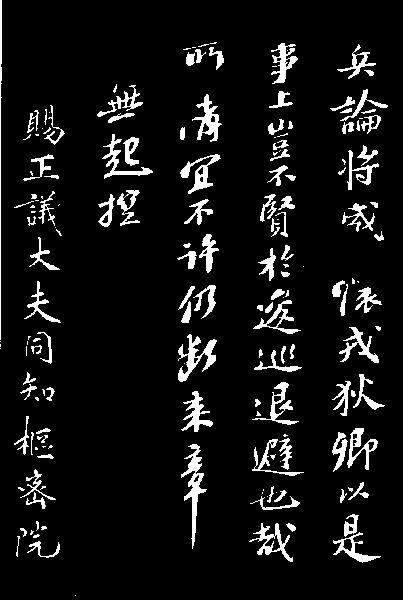 兵論將威 懷戎狄卿以是
事上豈不賢於逡巡退避也哉
所請宜不許仍斷来章
無起撰
賜正議大夫同知樞密院